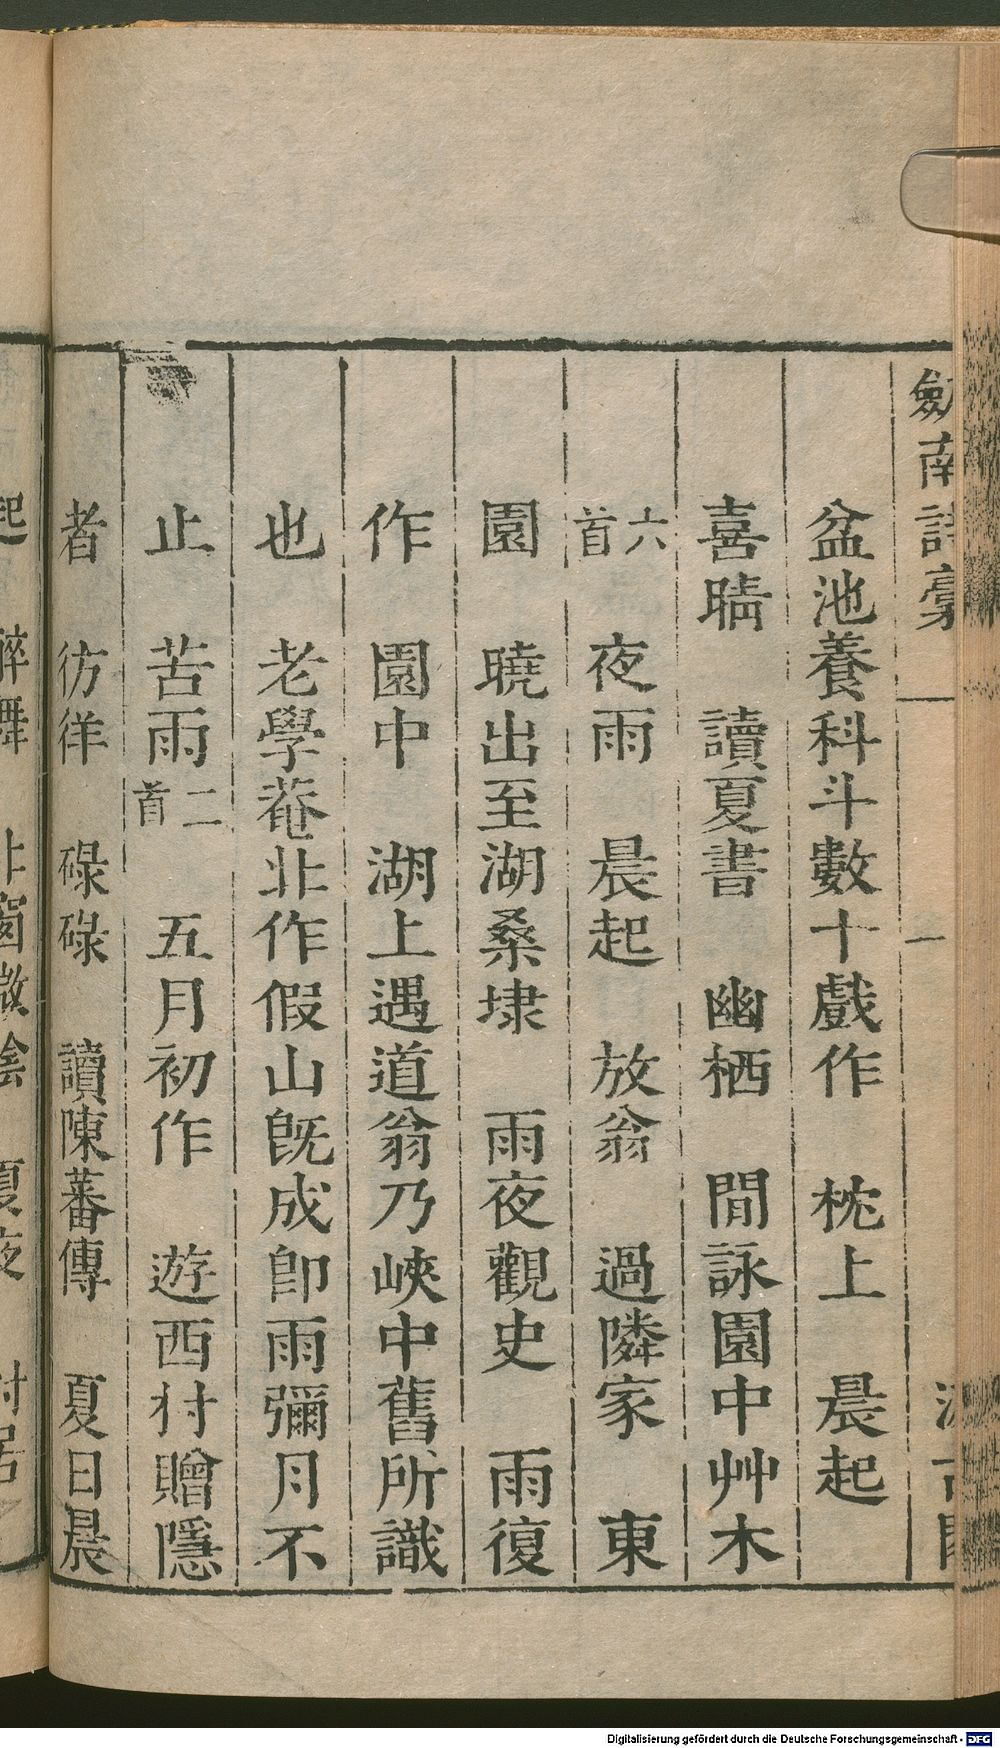 劔南詩稾 一
盆池養科斗數十戲作 枕上 晨起
喜晴 讀夏書 幽栖 閒詠園中艸木
六首 夜雨 晨起 放翁 過隣家 東
園 曉出至湖桑埭 雨夜觀史 雨復
作 園中 湖上遇道翁乃峽中舊所識
也 老學菴北作假山旣成卽雨彌月不
止 苦雨二首 五月初作 遊西村贈隱
者 彷徉 碌碌 讀陳蕃傳 夏日晨
起 醉舞 北窗 夏夜 村居
Digitalisierung gefördert durch die Deutsche Forschungsgemeinschaft - DFG